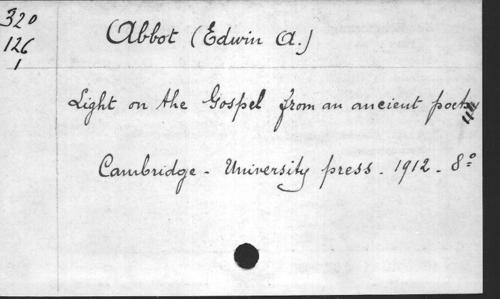 320
126
1
Abbot (Edwin A.)
Light on the Gospel from an ancient poet
Cambridge - University press - 1912 - 8º